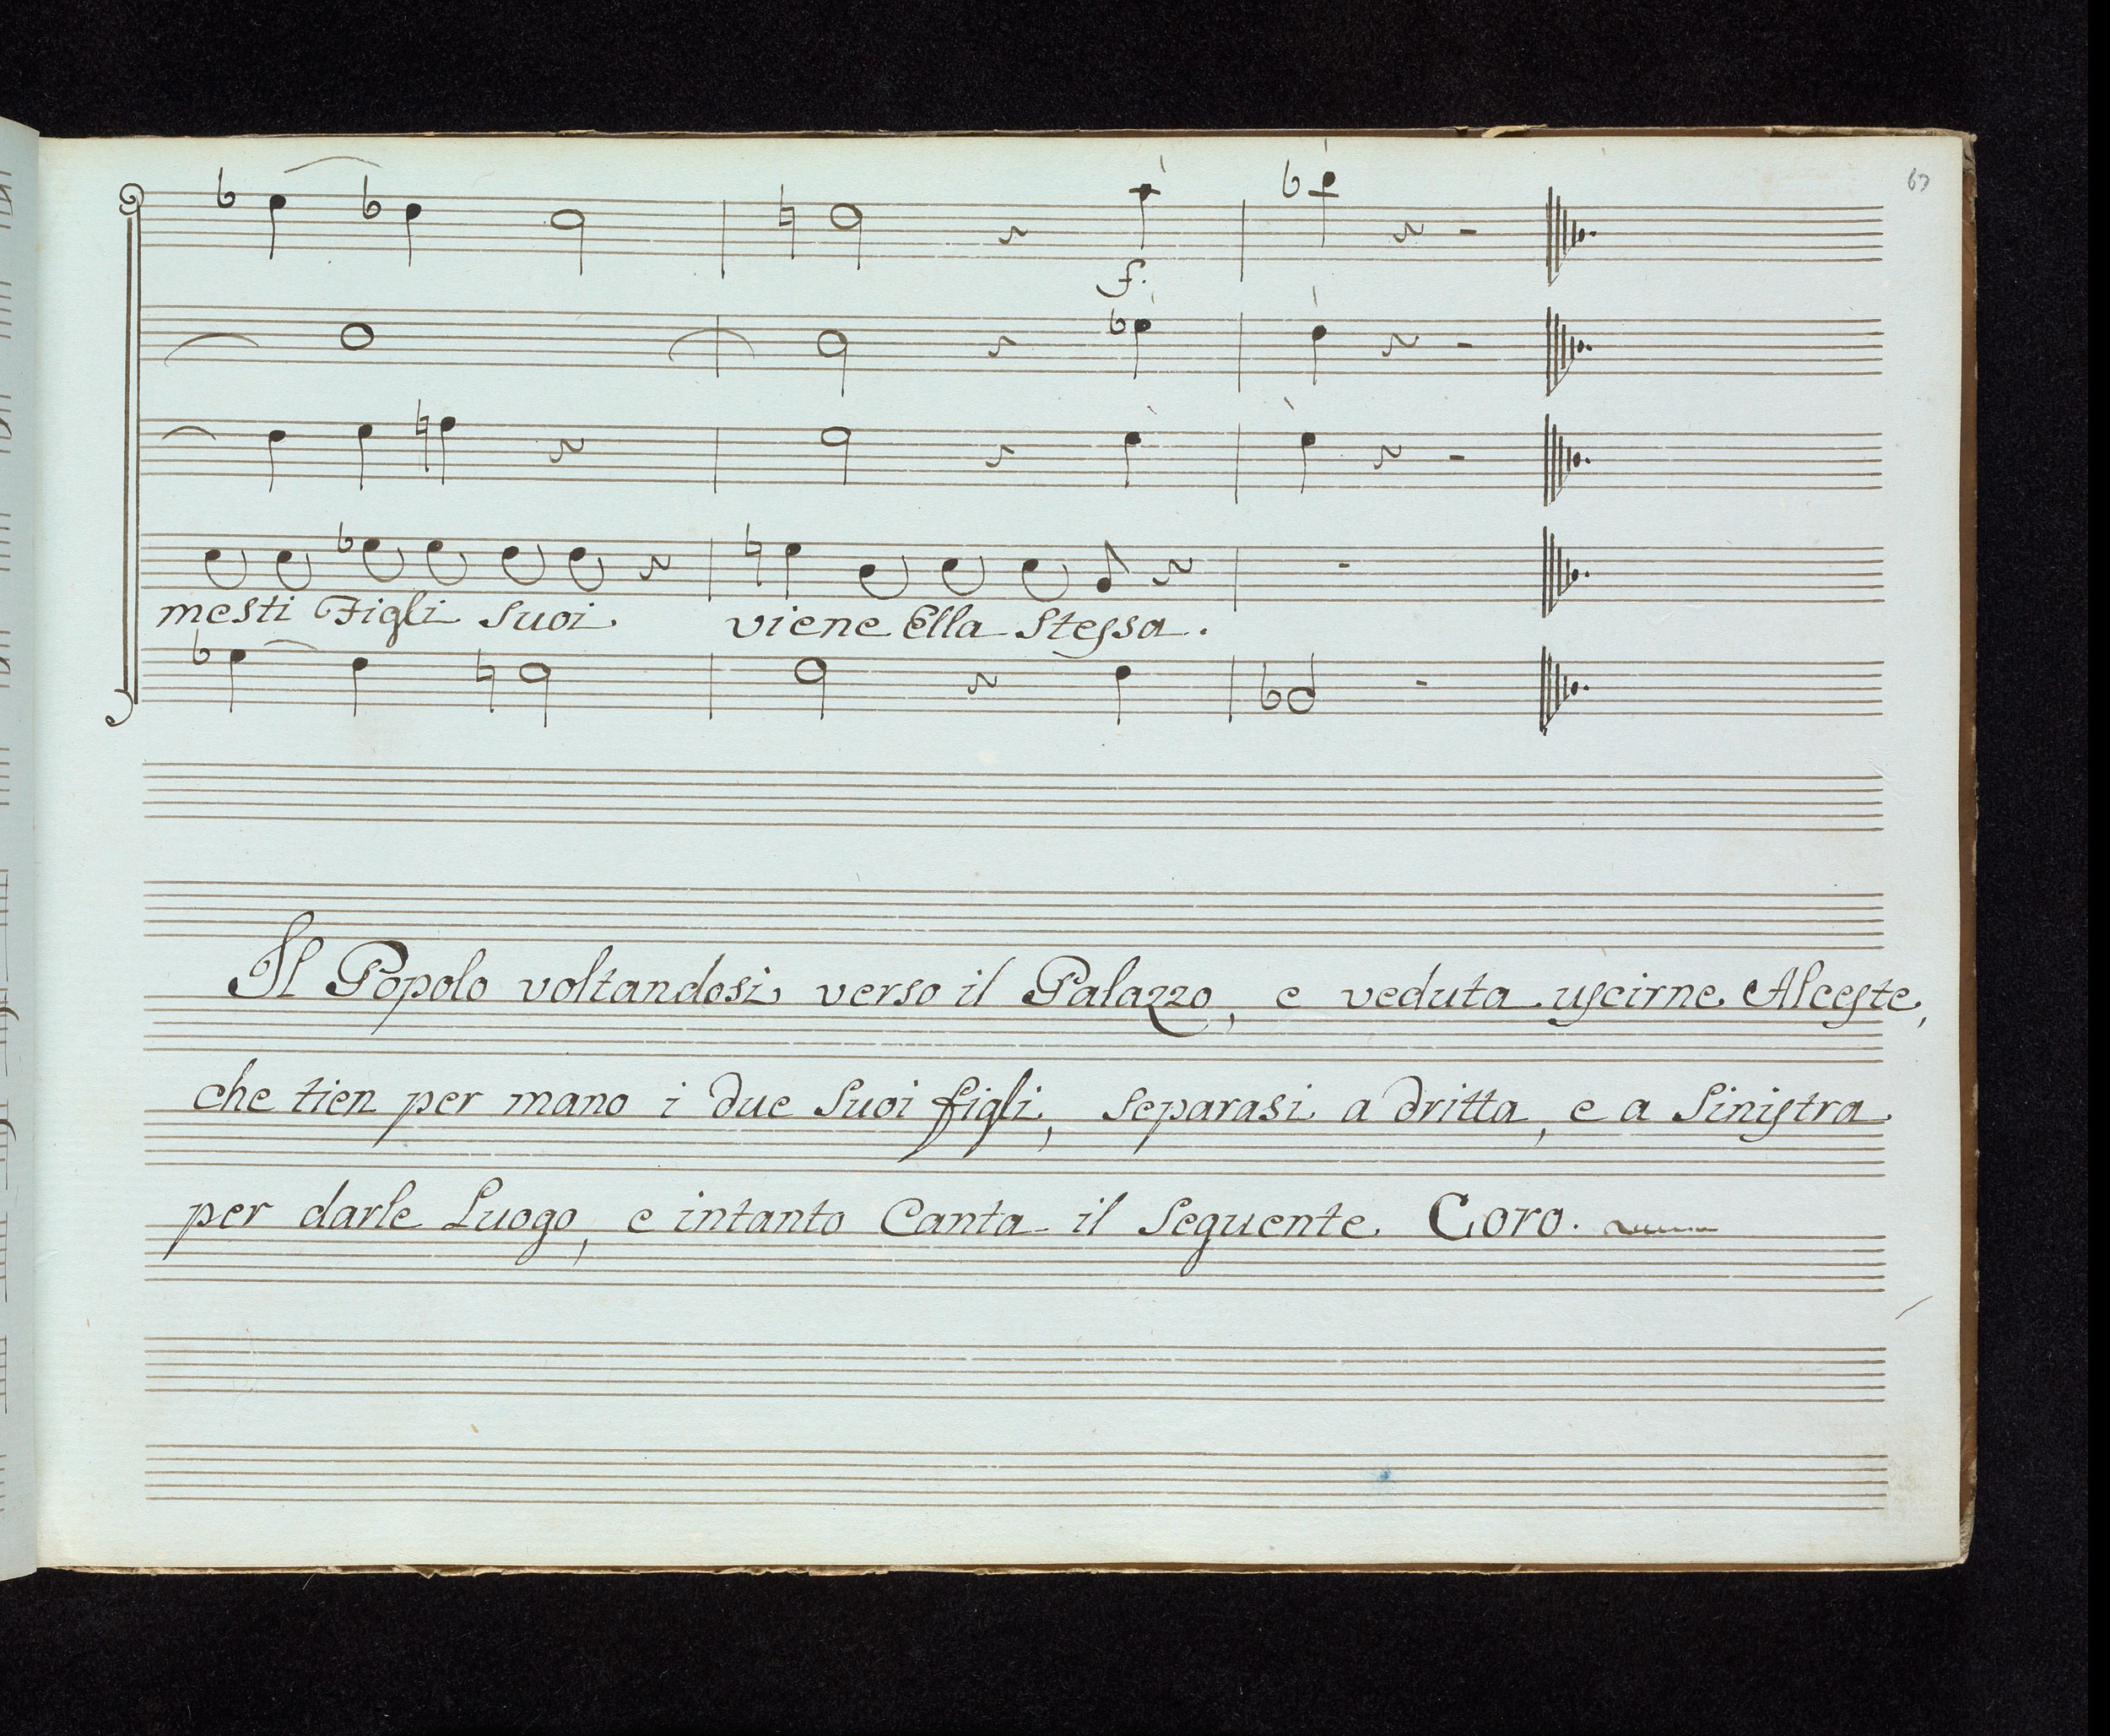 63
f.
mesti Figli suoi. viene Ella stessa.
Il Popolo voltandosi verso il Palazzo, e veduta uscirne Alceste,
che tien per mano i due suoi figli, separasi a dritta, e a sinistra
per darle Luogo, e intanto Canta il seguente Coro.